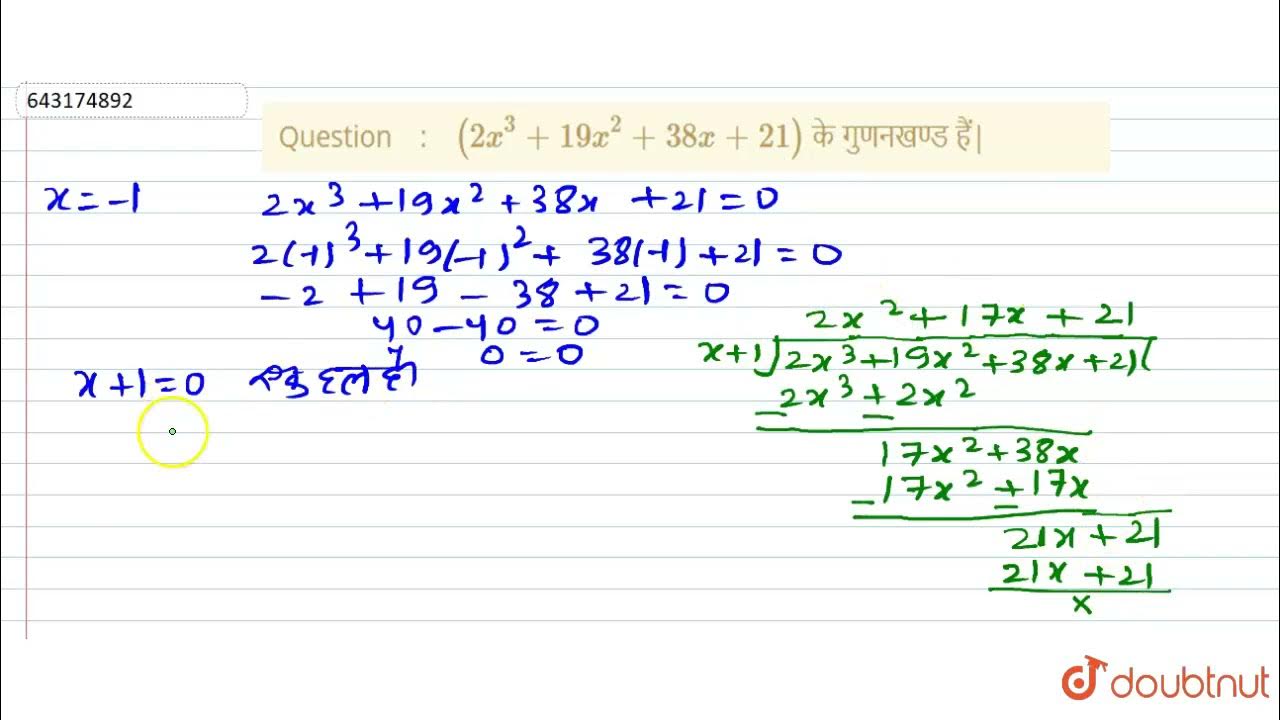 643174892
Question : (2x³ + 19x² + 38x + 21) के गुणनखण्ड हैं|
x = -1
2x³ + 19x² + 38x + 21 = 0
2(-1)³ + 19(-1)² + 38(-1) + 21 = 0
- 2 + 19 - 38 + 21 = 0
40 - 40 = 0
0 = 0
x + 1 = 0 एक हल है
2x² + 17x + 21
x+1) 2x³ + 19x² + 38x + 21 (
2x³ + 2x²
- -
17x² + 38x
17x² + 17x
- -
21x + 21
21x + 21
x
doubtnut